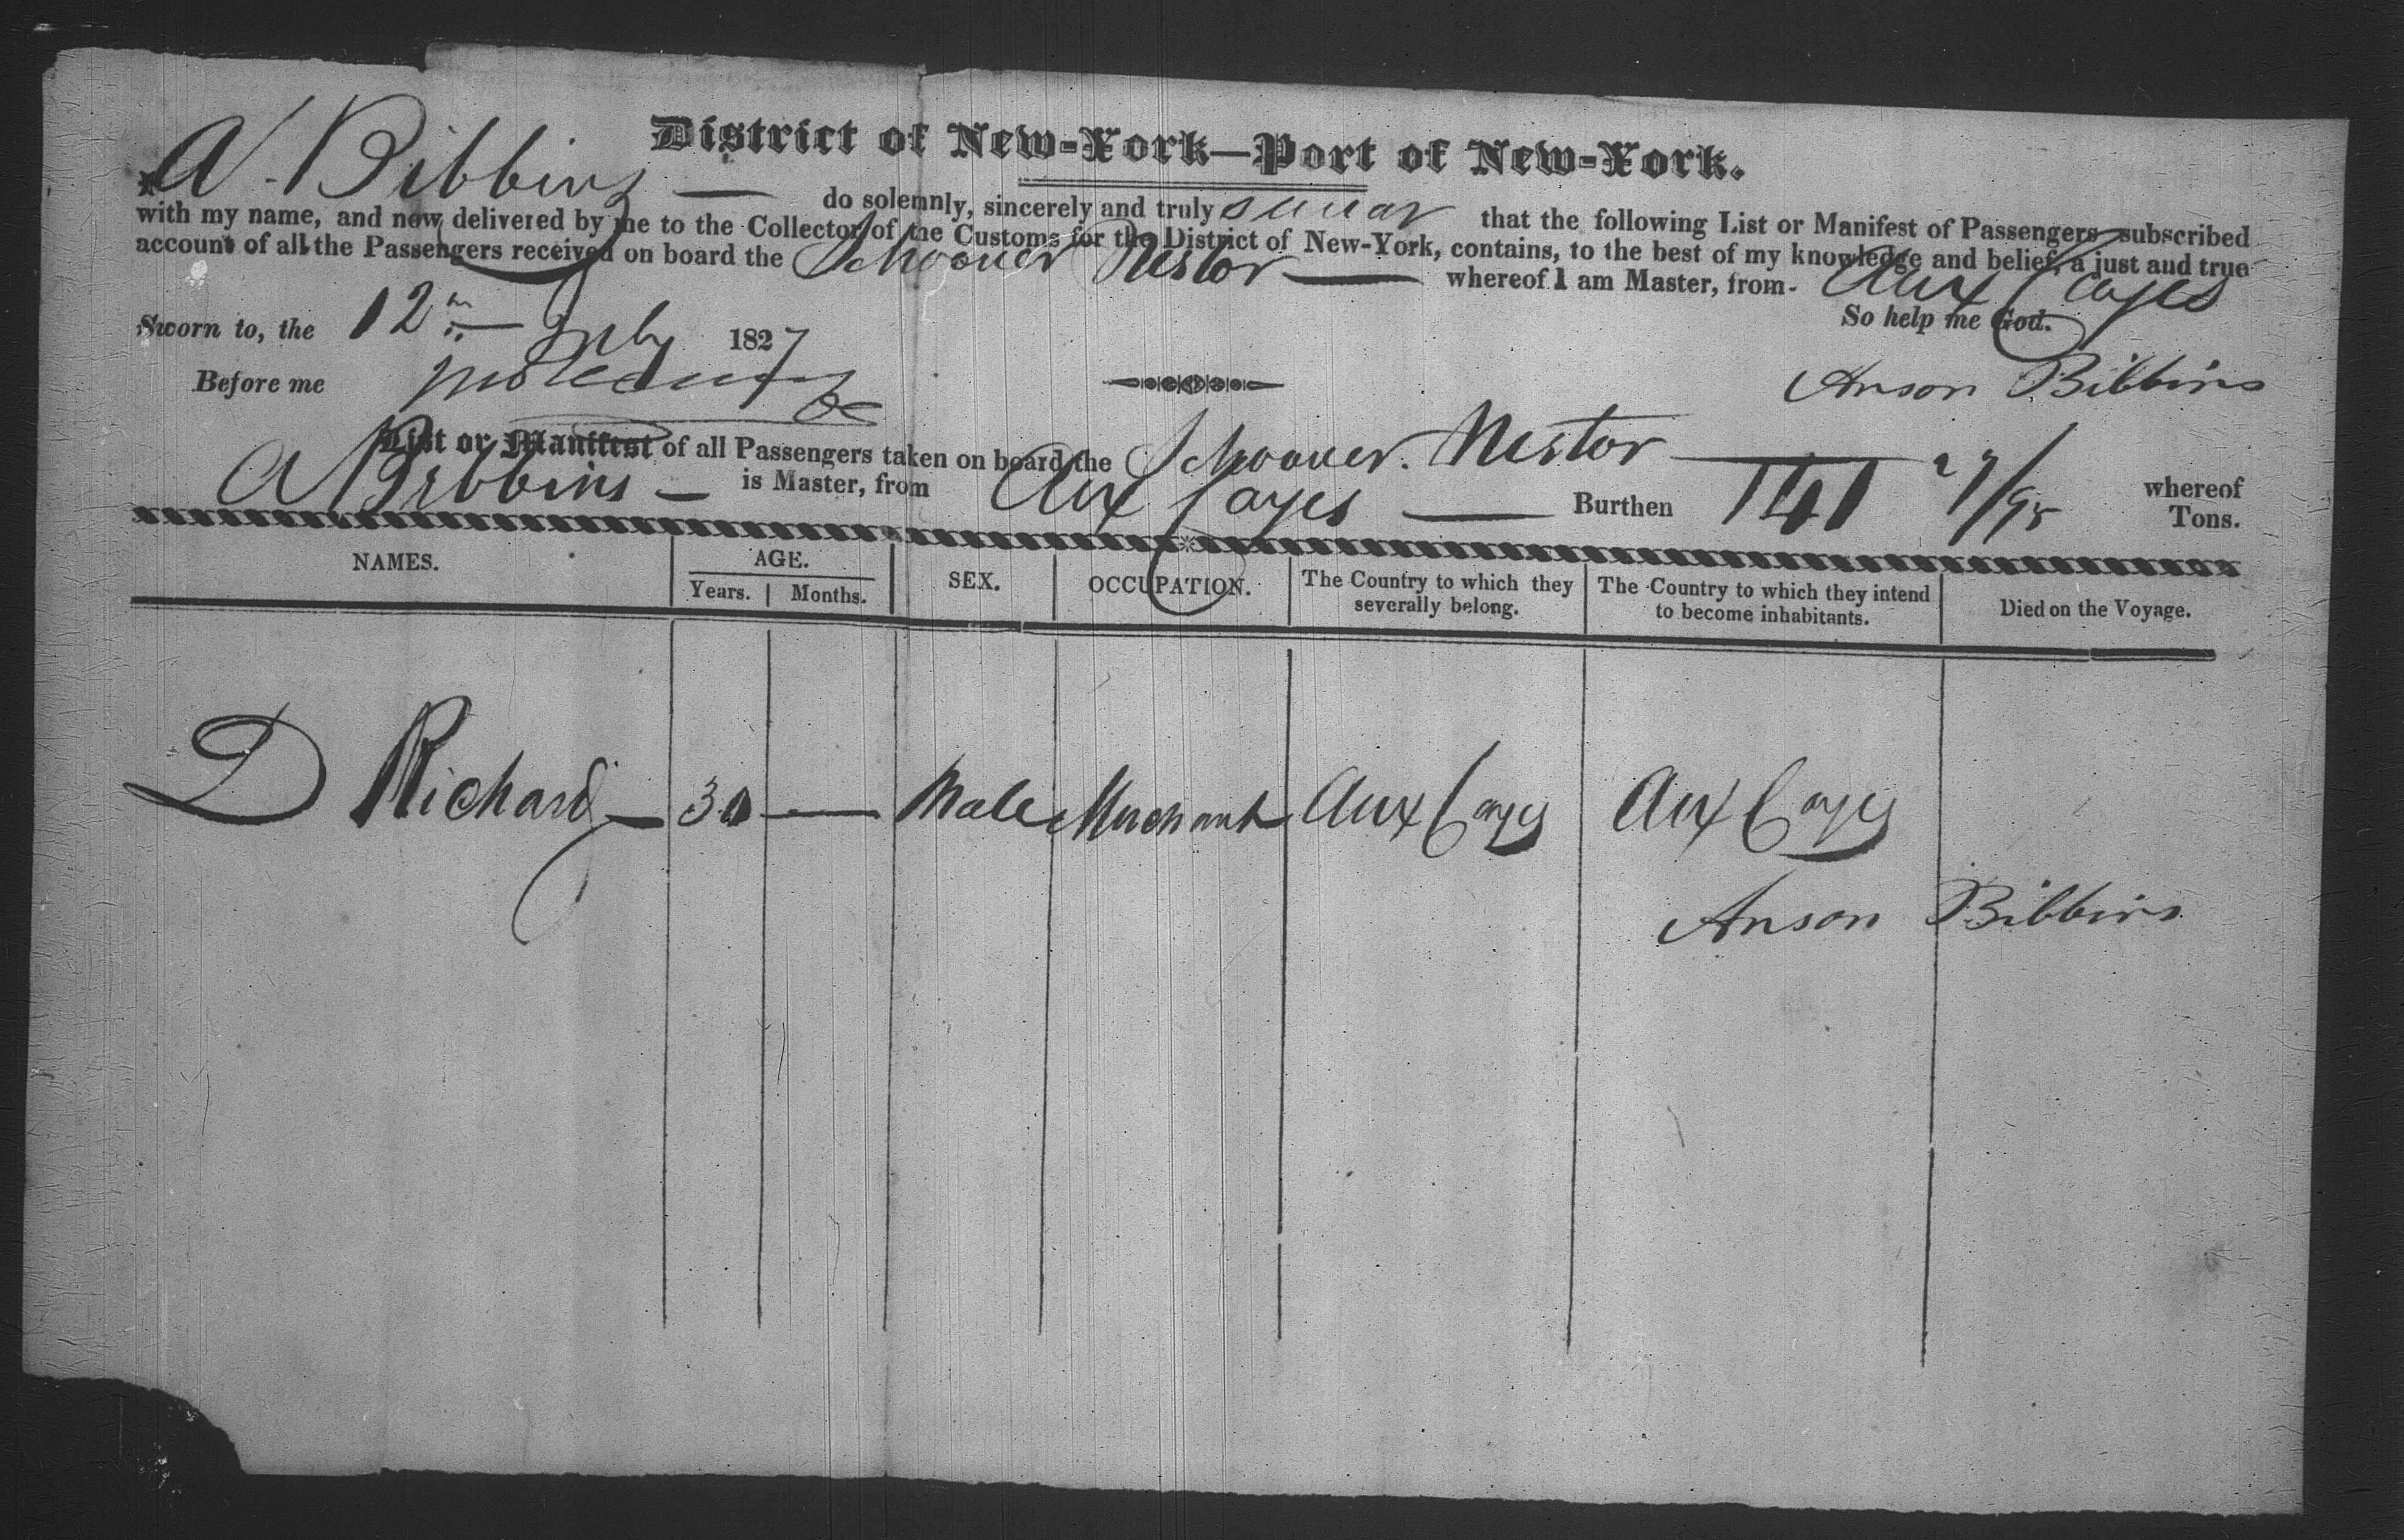 District of New-York—Port of New-York.
I, A. Bibbins — do solemnly, sincerely and truly swear that the following List or Manifest of Passengers subscribed
with my name, and now delivered by me to the Collector of the Customs for the District of New-York, contains, to the best of my knowledge and belief, a just and true
account of all the Passengers received on board the Schooner Nestor — whereof I am Master, from Aux Cayes
So help me God.
Sworn to, the 12th July 1827
Before me
Anson Bibbins
List or Manifest of all Passengers taken on board the Schooner Nestor — whereof
A Bibbins — is Master, from Aux Cayes — Burthen 141 /95 Tons.
NAMES. AGE. SEX. OCCUPATION. The Country to which they severally belong. The Country to which they intend to become inhabitants. Died on the Voyage.
Years. Months.
D Richard — 30 — Male Merchant Aux Cayes Aux Cayes
Anson Bibbins